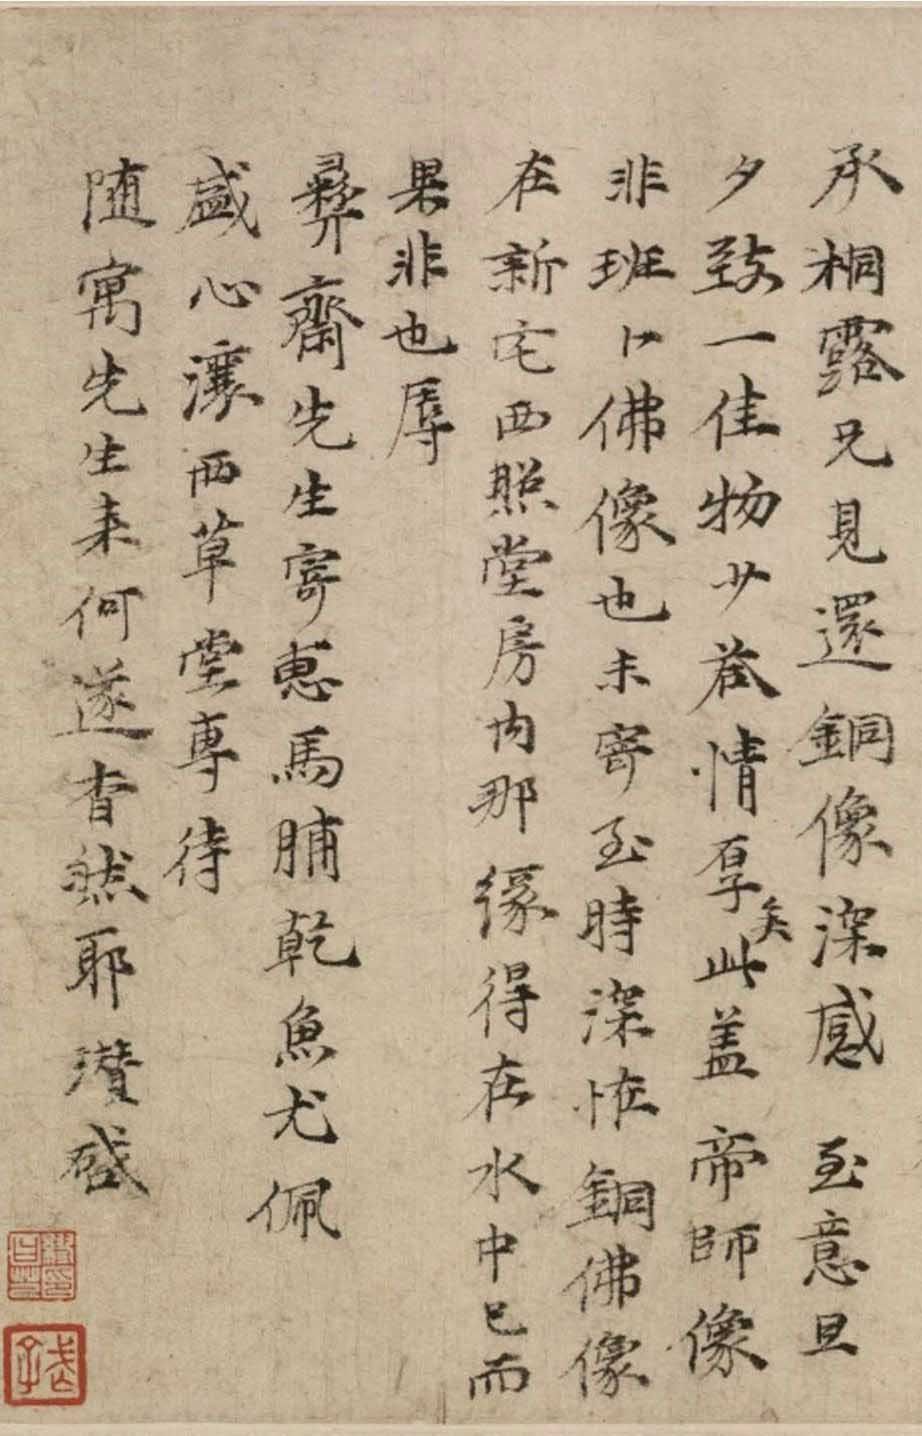 承桐露兄見還銅像深感至意旦
夕致一佳物少答情厚矣此盖帝師像
非班卜佛像也未寄至時深恠銅佛像
在新宅西照堂房内那緣得在水中已而
果非也辱
彝齋先生寄惠馬脯乾魚尤佩
盛心瀼西草堂專待
随寓先生来何遂杳然耶瓚啓